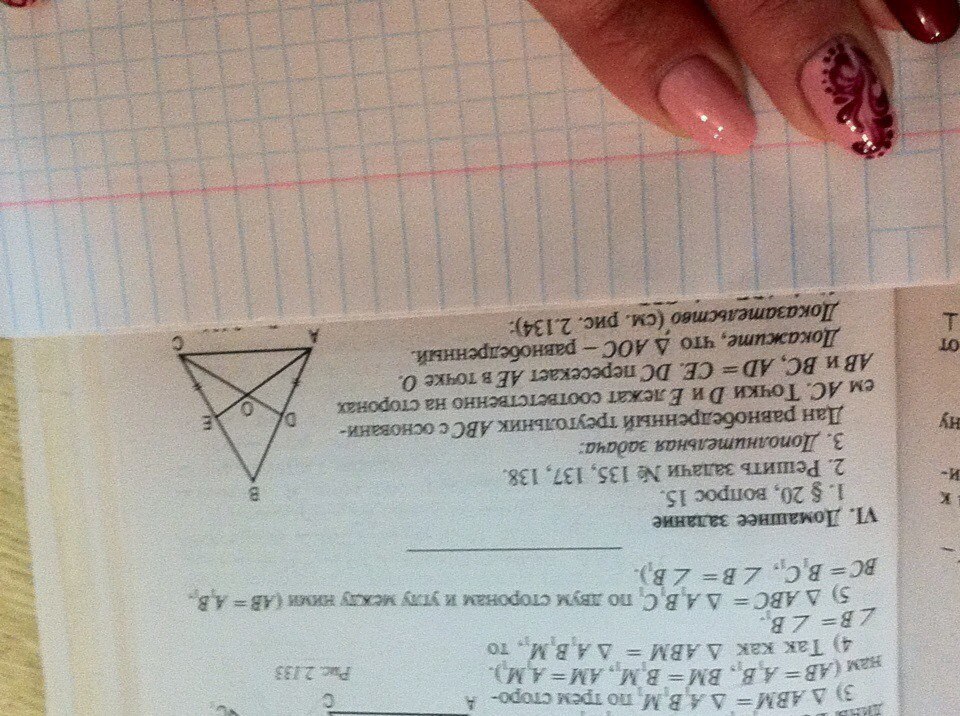 3) △ ABM = △ A₁B₁M₁ по трем сторо-
нам (AB = A₁B₁, BM = B₁M₁, AM = A₁M₁).
4) Так как △ ABM = △ A₁B₁M₁, то
∠B = ∠B₁.
5) △ ABC = △ A₁B₁C₁ по двум сторонам и углу между ними (AB = A₁B₁,
BC = B₁C₁, ∠B = ∠B₁).
A
C
Рис. 2.133
VI. Домашнее задание
1. § 20, вопрос 15.
2. Решить задачи № 135, 137, 138.
3. Дополнительная задача:
Дан равнобедренный треугольник ABC с основани-
ем AC. Точки D и E лежат соответственно на сторонах
AB и BC, AD = CE. DC пересекает AE в точке O.
Докажите, что △ AOC – равнобедренный.
Доказательство (см. рис. 2.134):
B
D
E
O
A
C
к
и-
ну
от